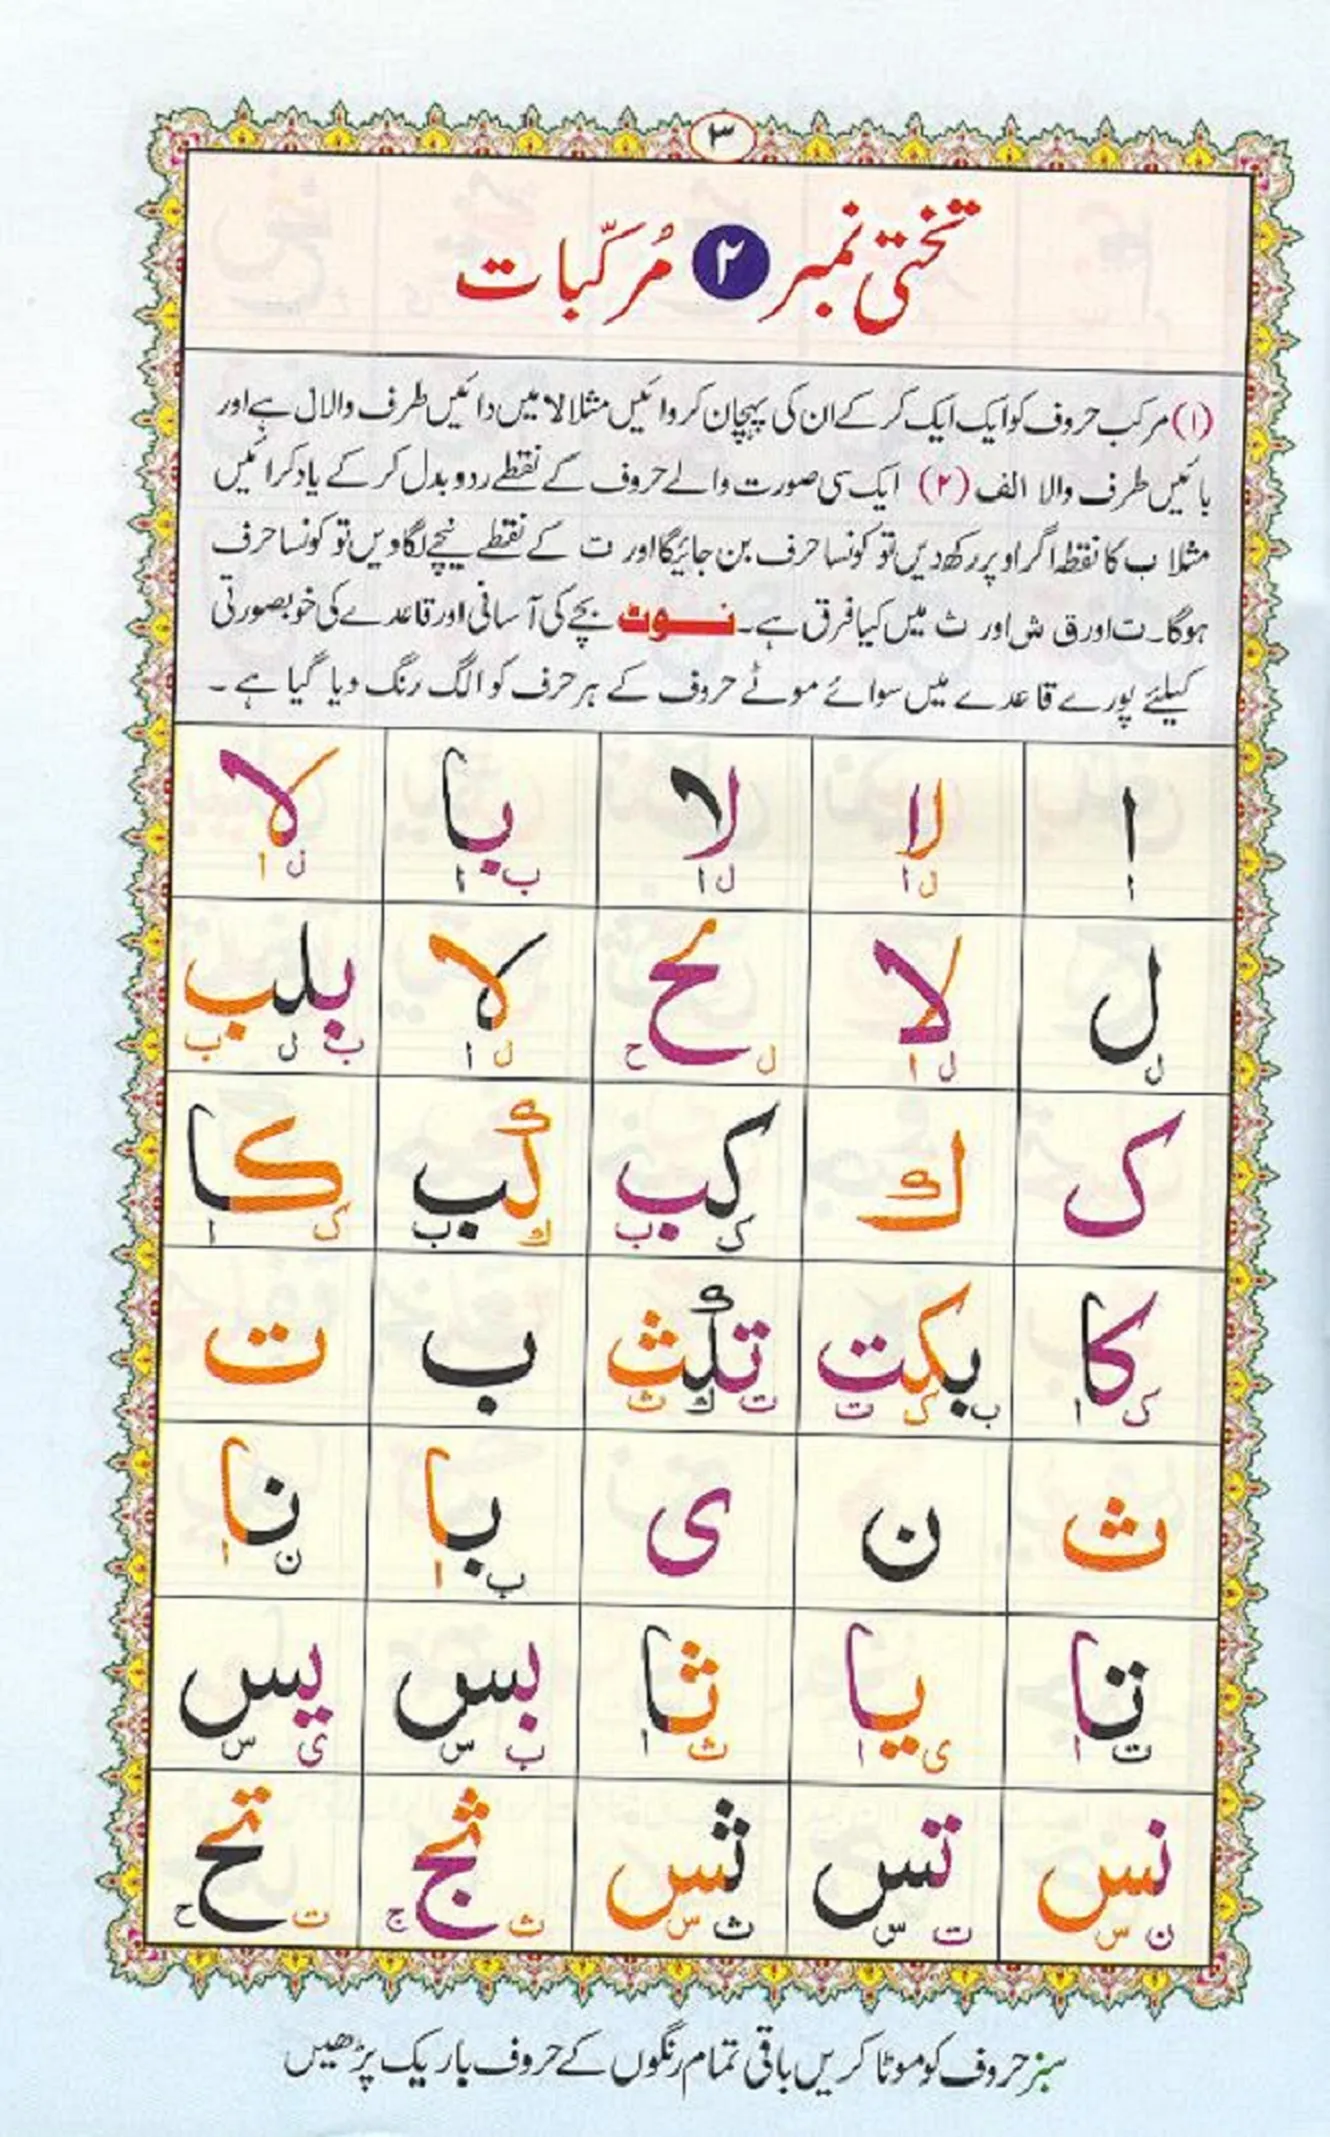 ٣
تختی نمبر ٢ مُرکّبات
(۱) مرکب حروف کو ایک ایک کر کے ان کی پہچان کروائیں مثلا لا میں دائیں طرف والا ل ہے اور
بائیں طرف والا الف (۲) ایک سی صورت والے حروف کے نقطے ردوبدل کر کے یاد کرائیں
مثلا ب کا نقطہ اگر اوپر رکھ دیں تو کونسا حرف بن جائیگا اور ت کے نقطے نیچے لگا دیں تو کونسا حرف
ہوگا۔ ت اور ق ش اور ث میں کیا فرق ہے۔ نوٹ بچے کی آسانی اور قاعدے کی خوبصورتی
کیلئے پورے قاعدے میں سوائے موٹے حروف کے ہر حرف کو الگ رنگ دیا گیا ہے ۔
ا لا لا با لا
ا ل ا ل ا ب ا ل ا
ل لا لح لا بلب
ل ل ا ل ح ل ا ب ل ب
ک ك کب كب کا
ک ب ك ب ک ا
کا بکت تكث ب ت
ک ا ب ک ت ت ك ث
ث ن ی با نا
ب ا ن ا
تا یا ثا بس یس
ت ا ی ا ث ا ب س ی س
نس تس ثس ثج تح
ن س ت س ث س ث ج ت ح
سبز حروف کو موٹا کریں باقی تمام رنگوں کے حروف باریک پڑھیں